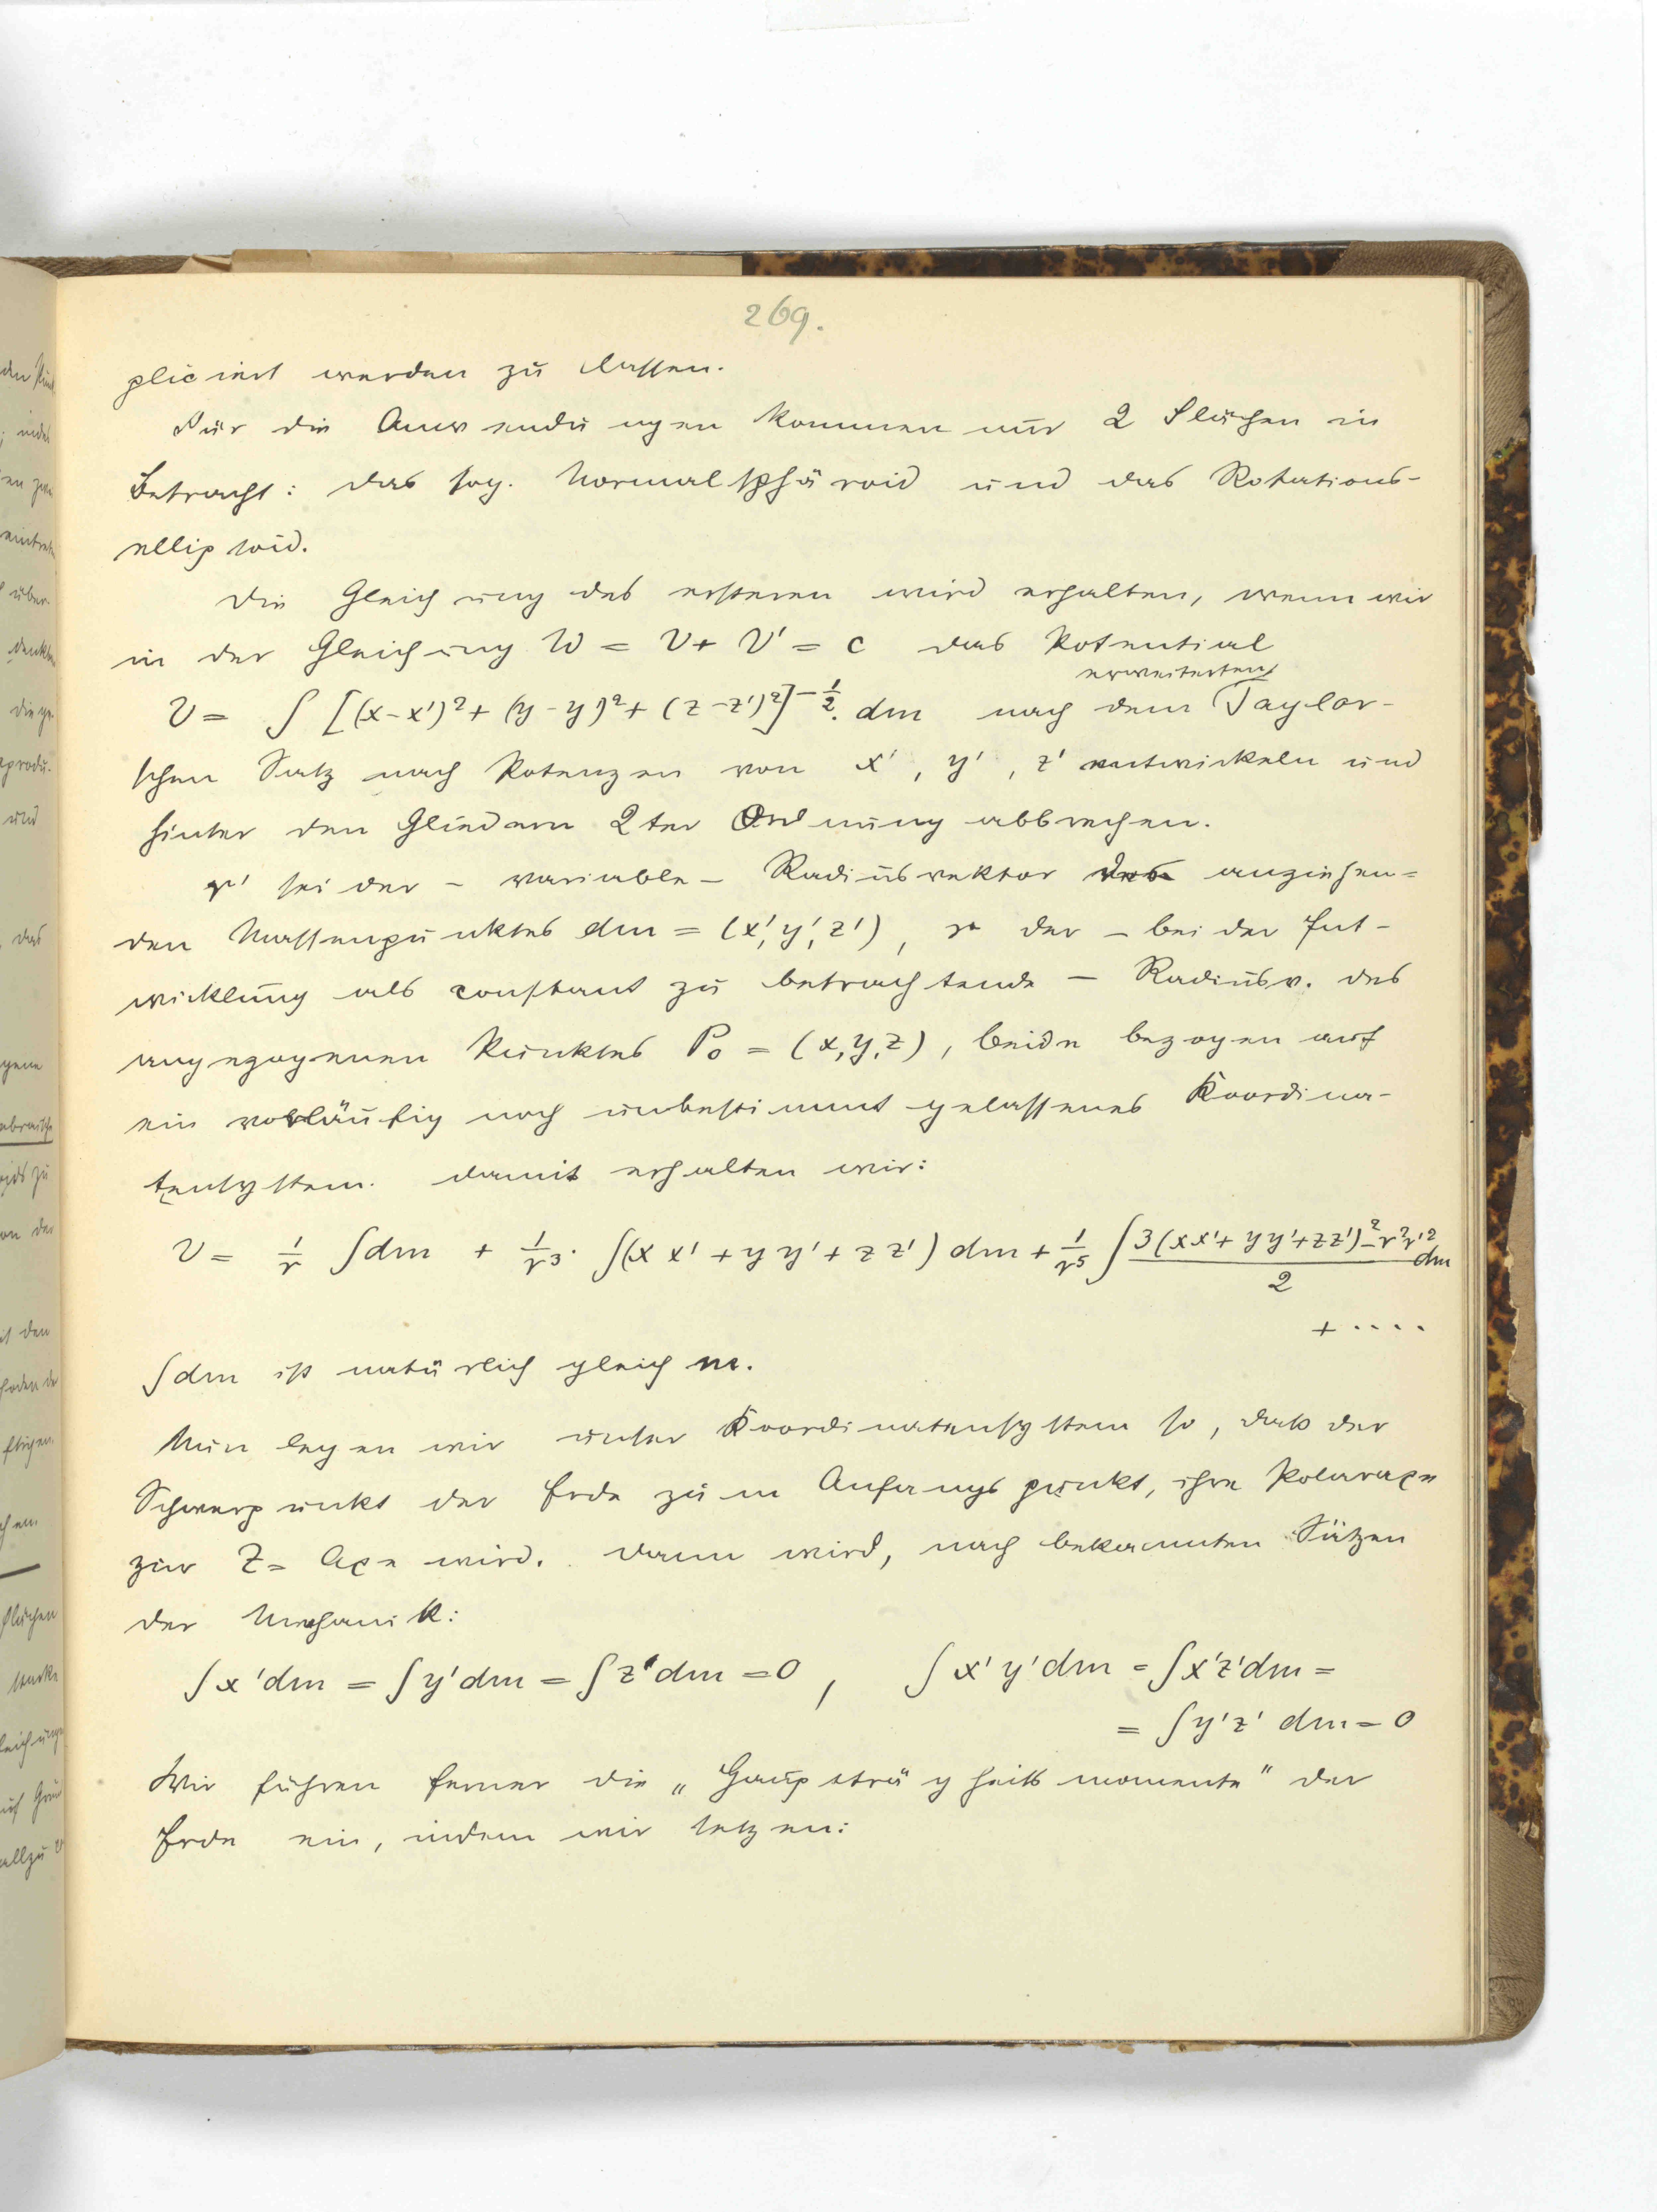 269.
pliciert werden zu lassen.
Für die Anwendungen kommen nur 2 Flächen in
Betracht: das sog. Normalsphäroid und das Rotations-
ellipsoid.
Die Gleichung des ersteren wird erhalten, wenn wir
in der Gleichung W = V + V' = c das Potential
erweiterten
V = ∫ [(x-x')² + (y-y')² + (z-z')²]^{-1/2}. dm nach dem Taylor-
schen Satz nach Potenzen von x', y', z' entwickeln und
hinter den Gliedern 2ter Ordnung abbrechen.
r' sei der – variable – Radiusvektor des anziehen=
den Massenpunktes dm = (x', y', z'), r der – bei der Ent-
wicklung als constant zu betrachtende – Radiusv. des
angezogenen Punktes P₀ = (x, y, z), beide bezogen auf
ein vorläufig noch unbestimmt gelassenes Koordina-
tensystem. Damit erhalten wir:
V = 1/r ∫dm + 1/r³ · ∫(xx' + yy' + zz') dm + 1/r⁵ ∫ (3(xx' + yy' + zz')² - r²r'²)/2 dm
+ ....
∫dm ist natürlich gleich m.
Nun legen wir unser Koordinatensystem so, dass der
Schwerpunkt der Erde zum Anfangspunkt, ihre Polaraxe
zur Z= Axe wird. Dann wird, nach bekannten Sätzen
der Mechanik:
∫x'dm = ∫y'dm = ∫z'dm = 0, ∫x'y'dm = ∫x'z'dm =
= ∫y'z' dm = 0
Wir führen ferner die „Hauptträgheitsmomente" der
Erde ein, indem wir setzen: